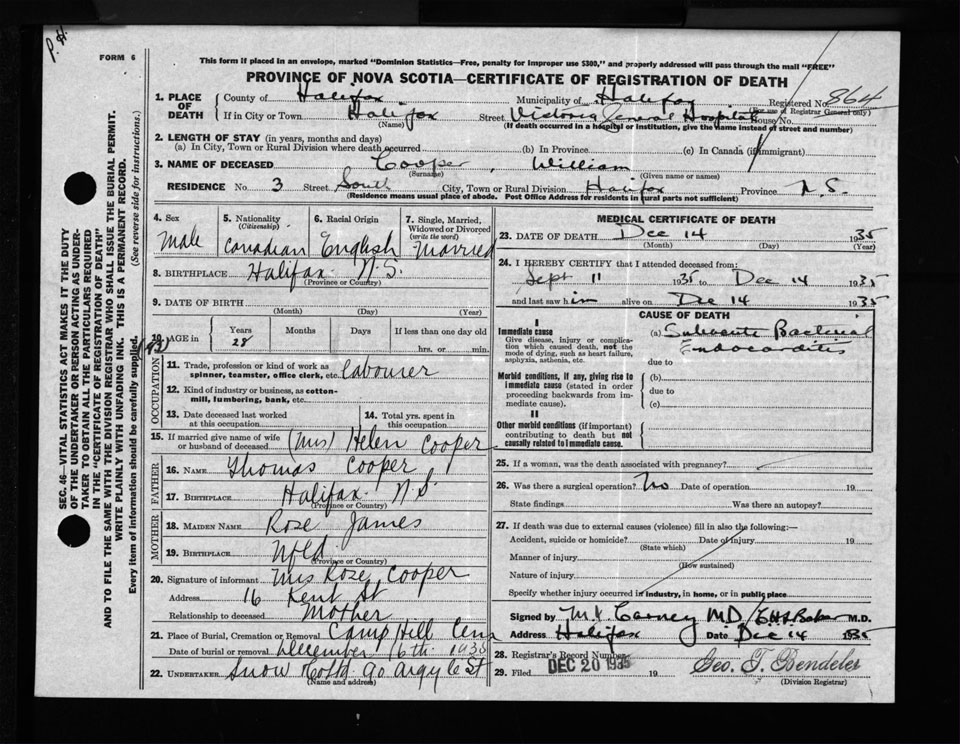 P. H.
FORM 6
This form if placed in an envelope, marked "Dominion Statistics—Free, penalty for improper use $300," and properly addressed will pass through the mail "FREE"
PROVINCE OF NOVA SCOTIA—CERTIFICATE OF REGISTRATION OF DEATH
1. PLACE OF DEATH
County of Halifax Municipality of Halifax Registered No. 864
(For use of Registrar General only)
If in City or Town Halifax Street Victoria General Hospital House No.
(Name) (If death occurred in a hospital or institution, give the name instead of street and number)
2. LENGTH OF STAY (in years, months and days)
(a) In City, Town or Rural Division where death occurred (b) In Province (c) In Canada (if immigrant)
3. NAME OF DECEASED Cooper, William
(Surname) (Given name or names)
RESIDENCE No. 3 Street South City, Town or Rural Division Halifax Province N.S.
(Residence means usual place of abode. Post Office Address for residents in rural parts not sufficient)
4. Sex 5. Nationality (Citizenship) 6. Racial Origin 7. Single, Married, Widowed or Divorced (write the word)
Male Canadian English Married
8. BIRTHPLACE Halifax N.S.
(Province or Country)
9. DATE OF BIRTH
(Month) (Day) (Year)
10. AGE in Years Months Days If less than one day old
28 hrs. or min.
OCCUPATION
11. Trade, profession or kind of work as spinner, teamster, office clerk, etc. labourer
12. Kind of industry or business, as cotton-mill, lumbering, bank, etc.
13. Date deceased last worked at this occupation 14. Total yrs. spent in this occupation
15. If married give name of wife or husband of deceased (Mrs) Helen Cooper
FATHER
16. NAME Thomas Cooper
17. BIRTHPLACE Halifax N.S.
(Province or Country)
MOTHER
18. MAIDEN NAME Rose James
19. BIRTHPLACE Nfld
(Province or Country)
20. Signature of informant Mrs Rose Cooper
Address 16 Kent St
Relationship to deceased Mother
21. Place of Burial, Cremation or Removal Camp Hill Cem
Date of burial or removal December 16th 1935
22. UNDERTAKER Snow 90 Argyle St
(Name and address)
MEDICAL CERTIFICATE OF DEATH
23. DATE OF DEATH Dec 14 1935
(Month) (Day) (Year)
24. I HEREBY CERTIFY that I attended deceased from:
Sept 11 1935 to Dec 14 1935
and last saw him alive on Dec 14 1935
CAUSE OF DEATH
I
Immediate cause
Give disease, injury or complication which caused death, not the mode of dying, such as heart failure, asphyxia, asthenia, etc.
(a) Subacute Bacterial
Endocarditis
due to
Morbid conditions, if any, giving rise to immediate cause (stated in order proceeding backwards from immediate cause).
(b)
due to
(c)
II
Other morbid conditions (if important) contributing to death but not causally related to immediate cause.
25. If a woman, was the death associated with pregnancy?
26. Was there a surgical operation? No Date of operation 19
State findings Was there an autopsy?
27. If death was due to external causes (violence) fill in also the following:—
Accident, suicide or homicide? Date of injury 19
(State which)
Manner of injury
(How sustained)
Nature of injury
Specify whether injury occurred in industry, in home, or in public place
Signed by M. Carney M.D. M.D.
Address Halifax Date Dec 14 1935
28. Registrar's Record Number
29. Filed DEC 20 1935 19 Geo. T. Bendeler
(Division Registrar)
SEC. 46—VITAL STATISTICS ACT MAKES IT THE DUTY
OF THE UNDERTAKER OR PERSON ACTING AS UNDER-
TAKER TO OBTAIN ALL THE PARTICULARS REQUIRED
IN THE "CERTIFICATE OF REGISTRATION OF DEATH"
AND TO FILE THE SAME WITH THE DIVISION REGISTRAR WHO SHALL ISSUE THE BURIAL PERMIT.
WRITE PLAINLY WITH UNFADING INK. THIS IS A PERMANENT RECORD.
Every item of information should be carefully supplied. (See reverse side for instructions.)